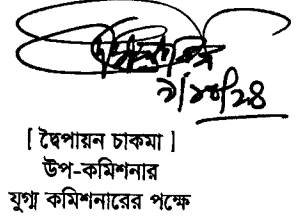 ৯/১০/২৪
[ দ্বৈপায়ন চাকমা ]
উপ-কমিশনার
যুগ্ম কমিশনারের পক্ষে